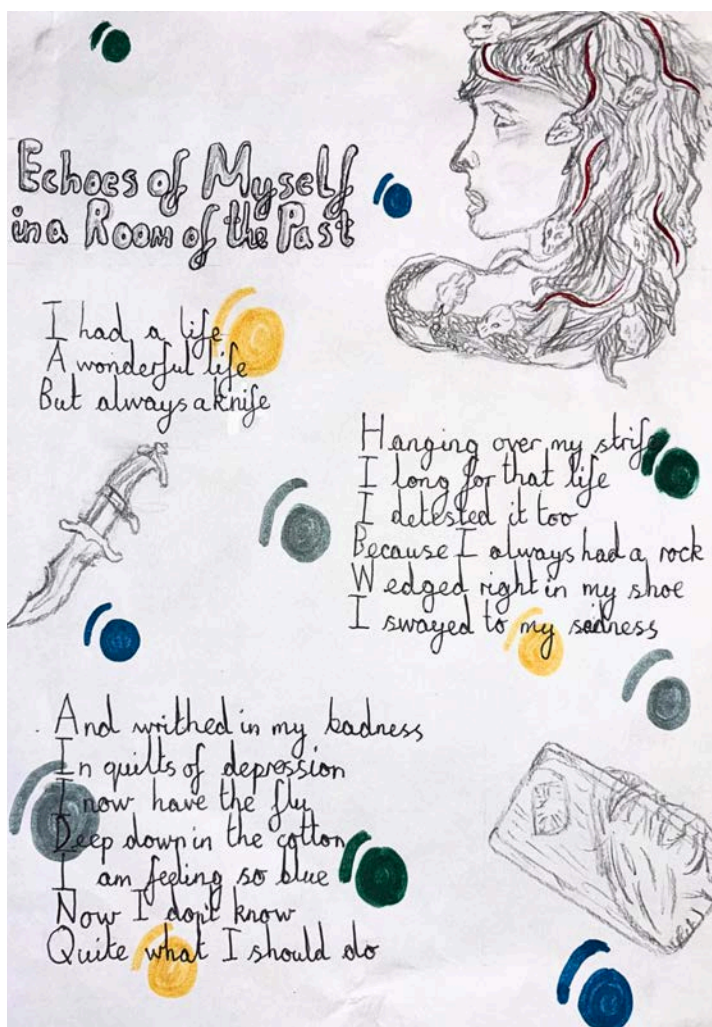 Echoes of Myself
in a Room of the Past
I had a life
A wonderful life
But always a knife
Hanging over my strife
I long for that life
I detested it too
Because I always had a rock
Wedged right in my shoe
I swayed to my sadness
And writhed in my badness
In quilts of depression
I now have the flu
Deep down in the cotton
I am feeling so blue
Now I don't know
Quite what I should do